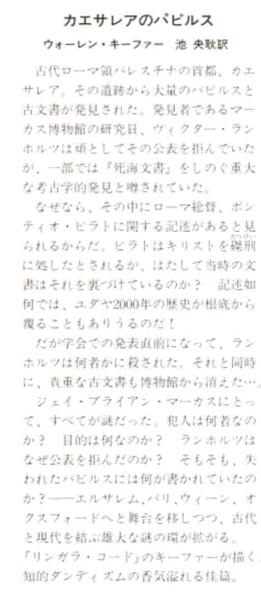 カエサレアのパピルス
ウォーレン・キーファー 池 央耿訳
古代ローマ領パレスチナの首都、カエ
サレア。その遺跡から大量のパピルスと
古文書が発見された。発見者であるマー
カス博物館の研究員、ヴィクター・ラン
ホルツは頑としてその公表を拒んでいた
が、一部では『死海文書』をしのぐ重大
な考古学的発見と噂されていた。
なぜなら、その中にローマ総督、ポン
ティオ・ピラトに関する記述があると見
られるからだ。ピラトはキリストを磔刑
に処したとされるが、はたして当時の文
書はそれを裏づけているのか? 記述如
何では、ユダヤ2000年の歴史が根底から
覆ることもありうるのだ!
だが学会での発表直前になって、ラン
ホルツは何者かに殺された。それと同時
に、貴重な古文書も博物館から消えた…。
ジェイ・ブライアン・マーカスにとっ
て、すべてが謎だった。犯人は何者なの
か? 目的は何なのか? ランホルツは
なぜ公表を拒んだのか? そもそも、失
われたパピルスには何が書かれていたの
か?――エルサレム、パリ、ウィーン、オ
クスフォードへと舞台を移しつつ、古代
と現代を結ぶ雄大な謎の環が拡がる。
『リンガラ・コード』のキーファーが描く
知的ダンディズムの香気溢れる佳篇。